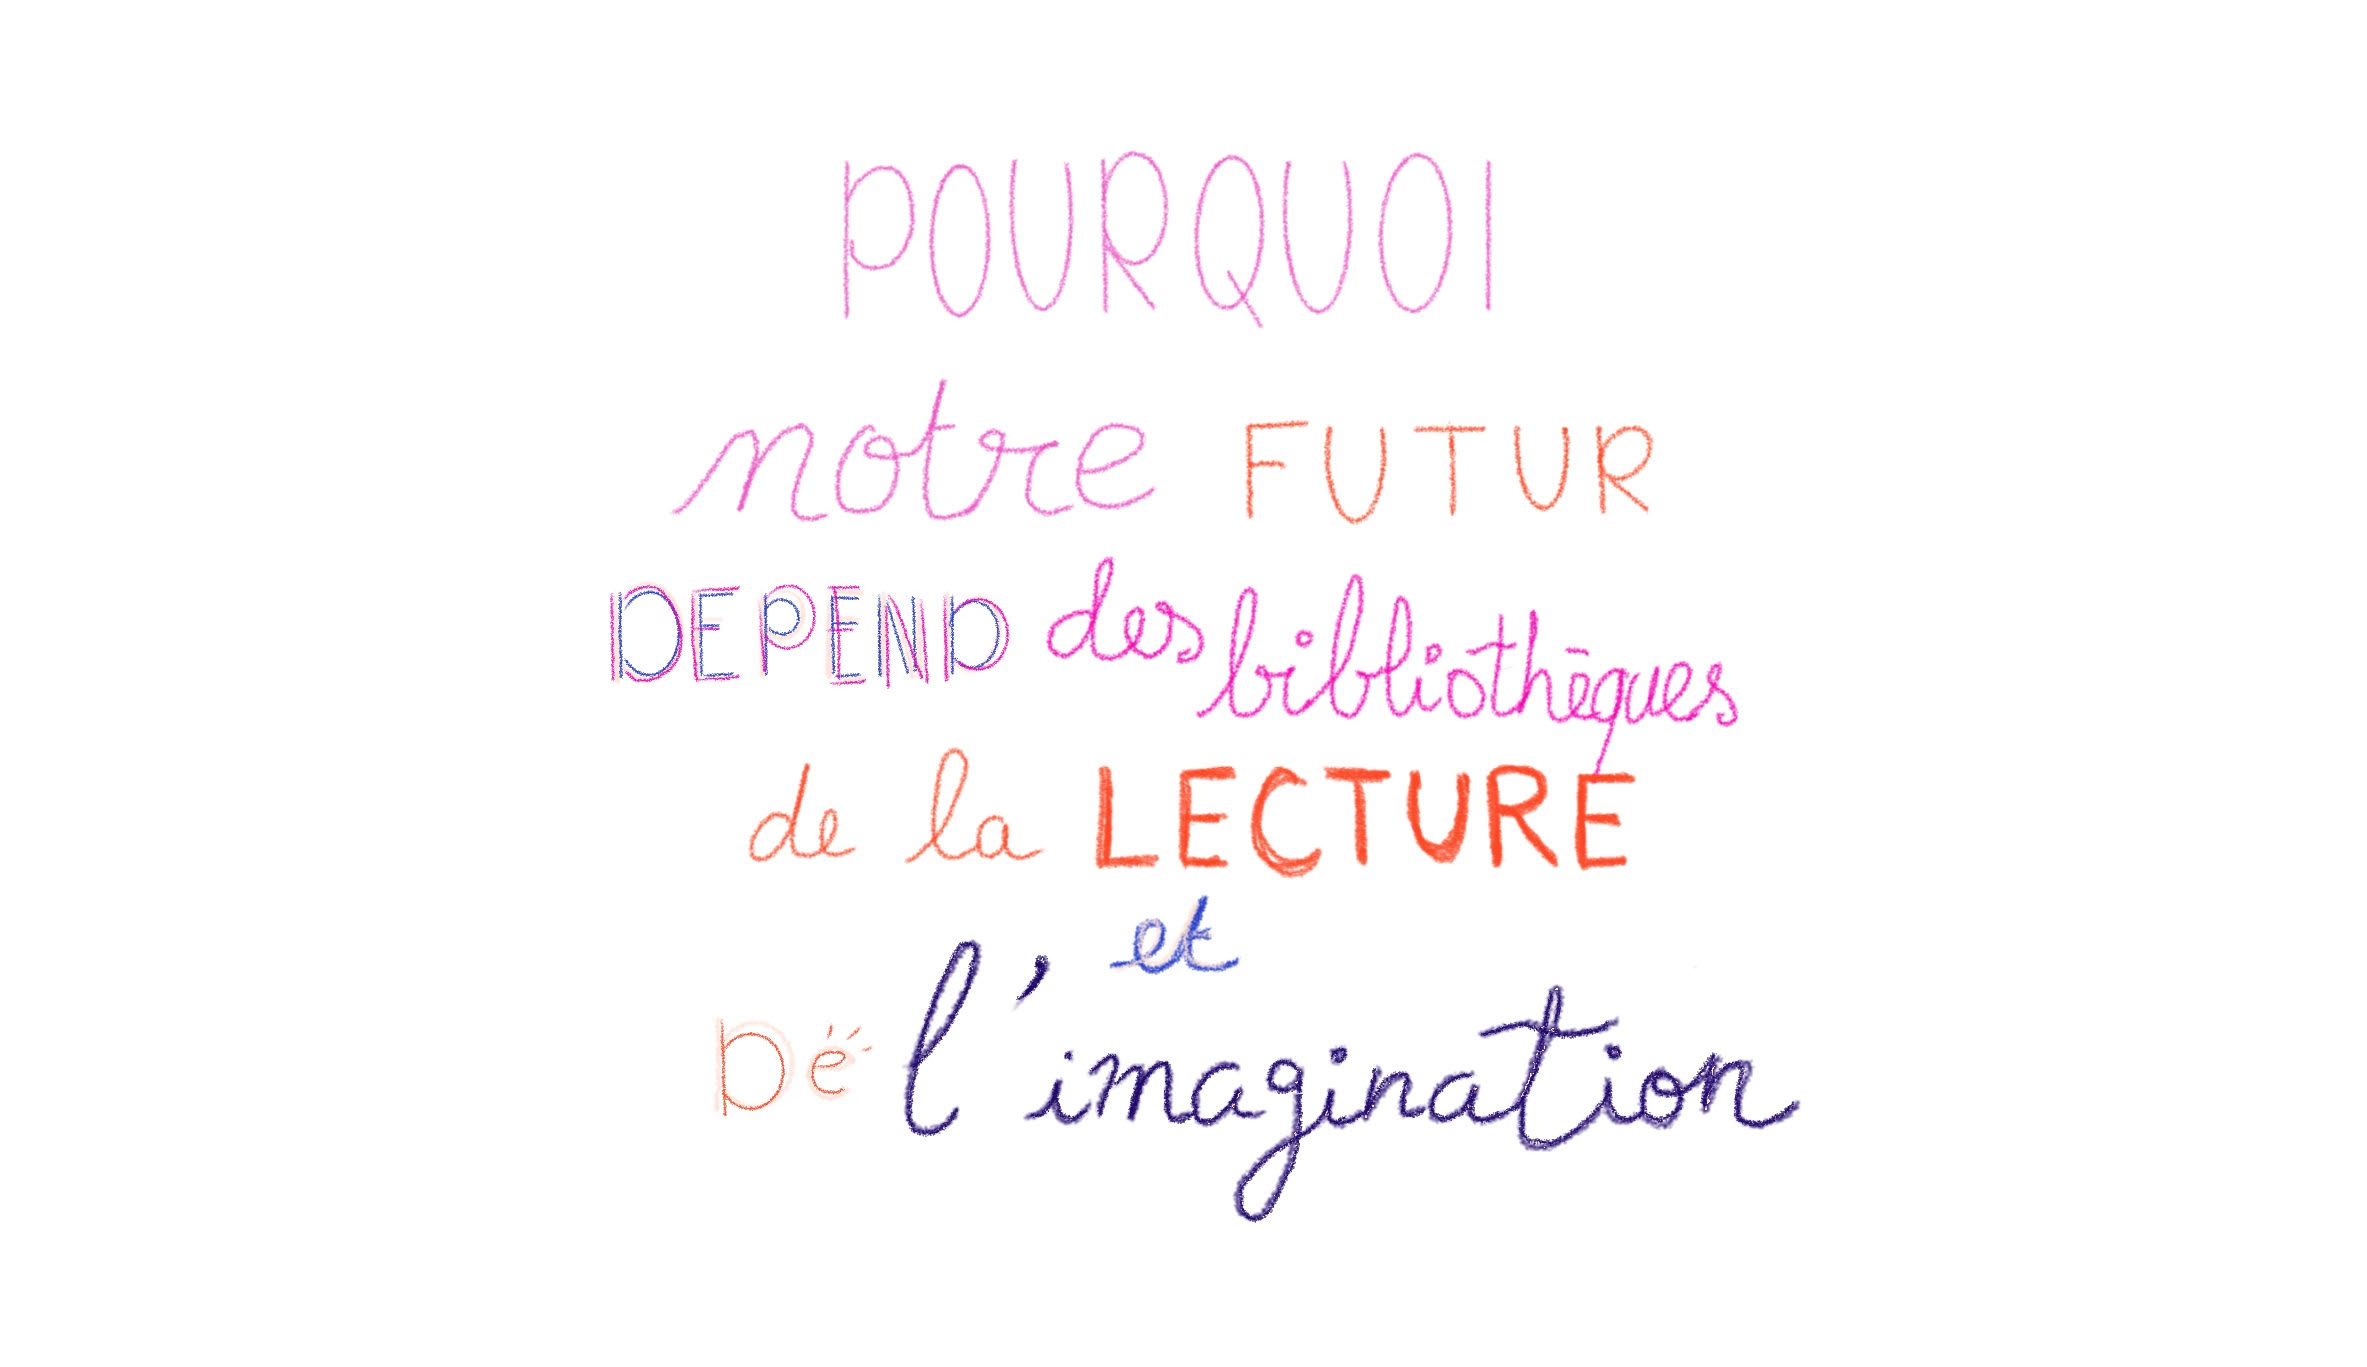 POURQUOI
notre FUTUR
DEPEND des bibliothēques
de la LECTURE
et
De l'imagination